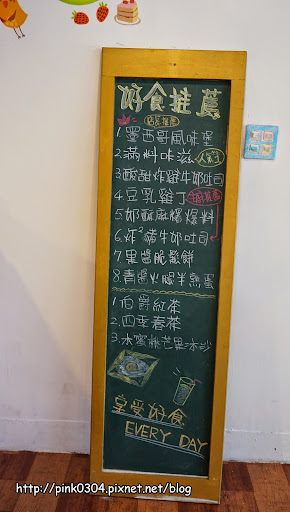 好食推薦
店長推薦
1.墨西哥風味堡
2.滿料咔滋
人氣王
3.酸甜炸雞牛奶吐司
4.豆乳雞丁
5.奶酥麻糬爆料
6.炸豬牛奶吐司
7.果醬脆鬆餅
8.青醬火腿半熟蛋
1.伯爵紅茶
2.四季春茶
3.水蜜桃芒果冰沙
享受好食
EVERY DAY
http://pink0304.pixnet.net/blog